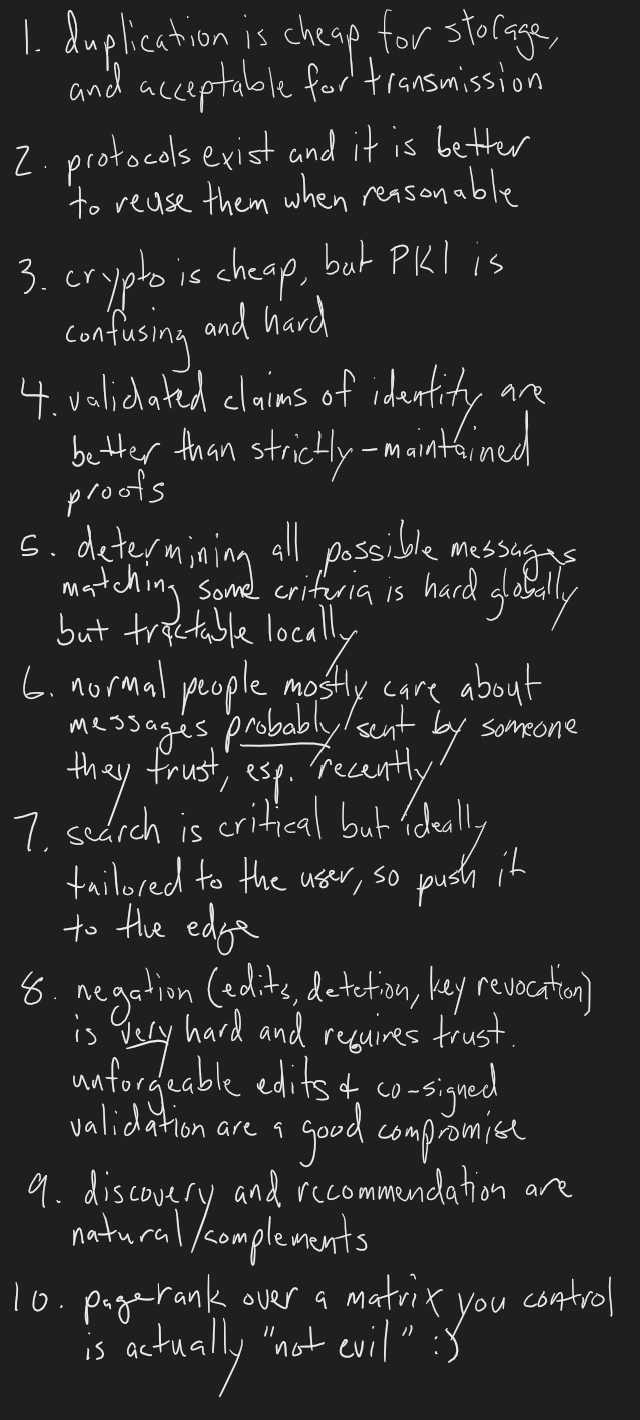 1. duplication is cheap for storage,
and acceptable for transmission
2. protocols exist and it is better
to reuse them when reasonable
3. crypto is cheap, but PKI is
confusing and hard
4. validated claims of identity are
better than strictly-maintained
proofs
5. determining all possible messages
matching some criteria is hard globally
but tractable locally
6. normal people mostly care about
messages probably sent by someone
they trust, esp. recently
7. search is critical but ideally
tailored to the user, so push it
to the edge
8. negation (edits, deletion, key revocation)
is very hard and requires trust.
unforgeable edits & co-signed
validation are a good compromise
9. discovery and recommendation are
natural complements
10. pagerank over a matrix you control
is actually "not evil" :)